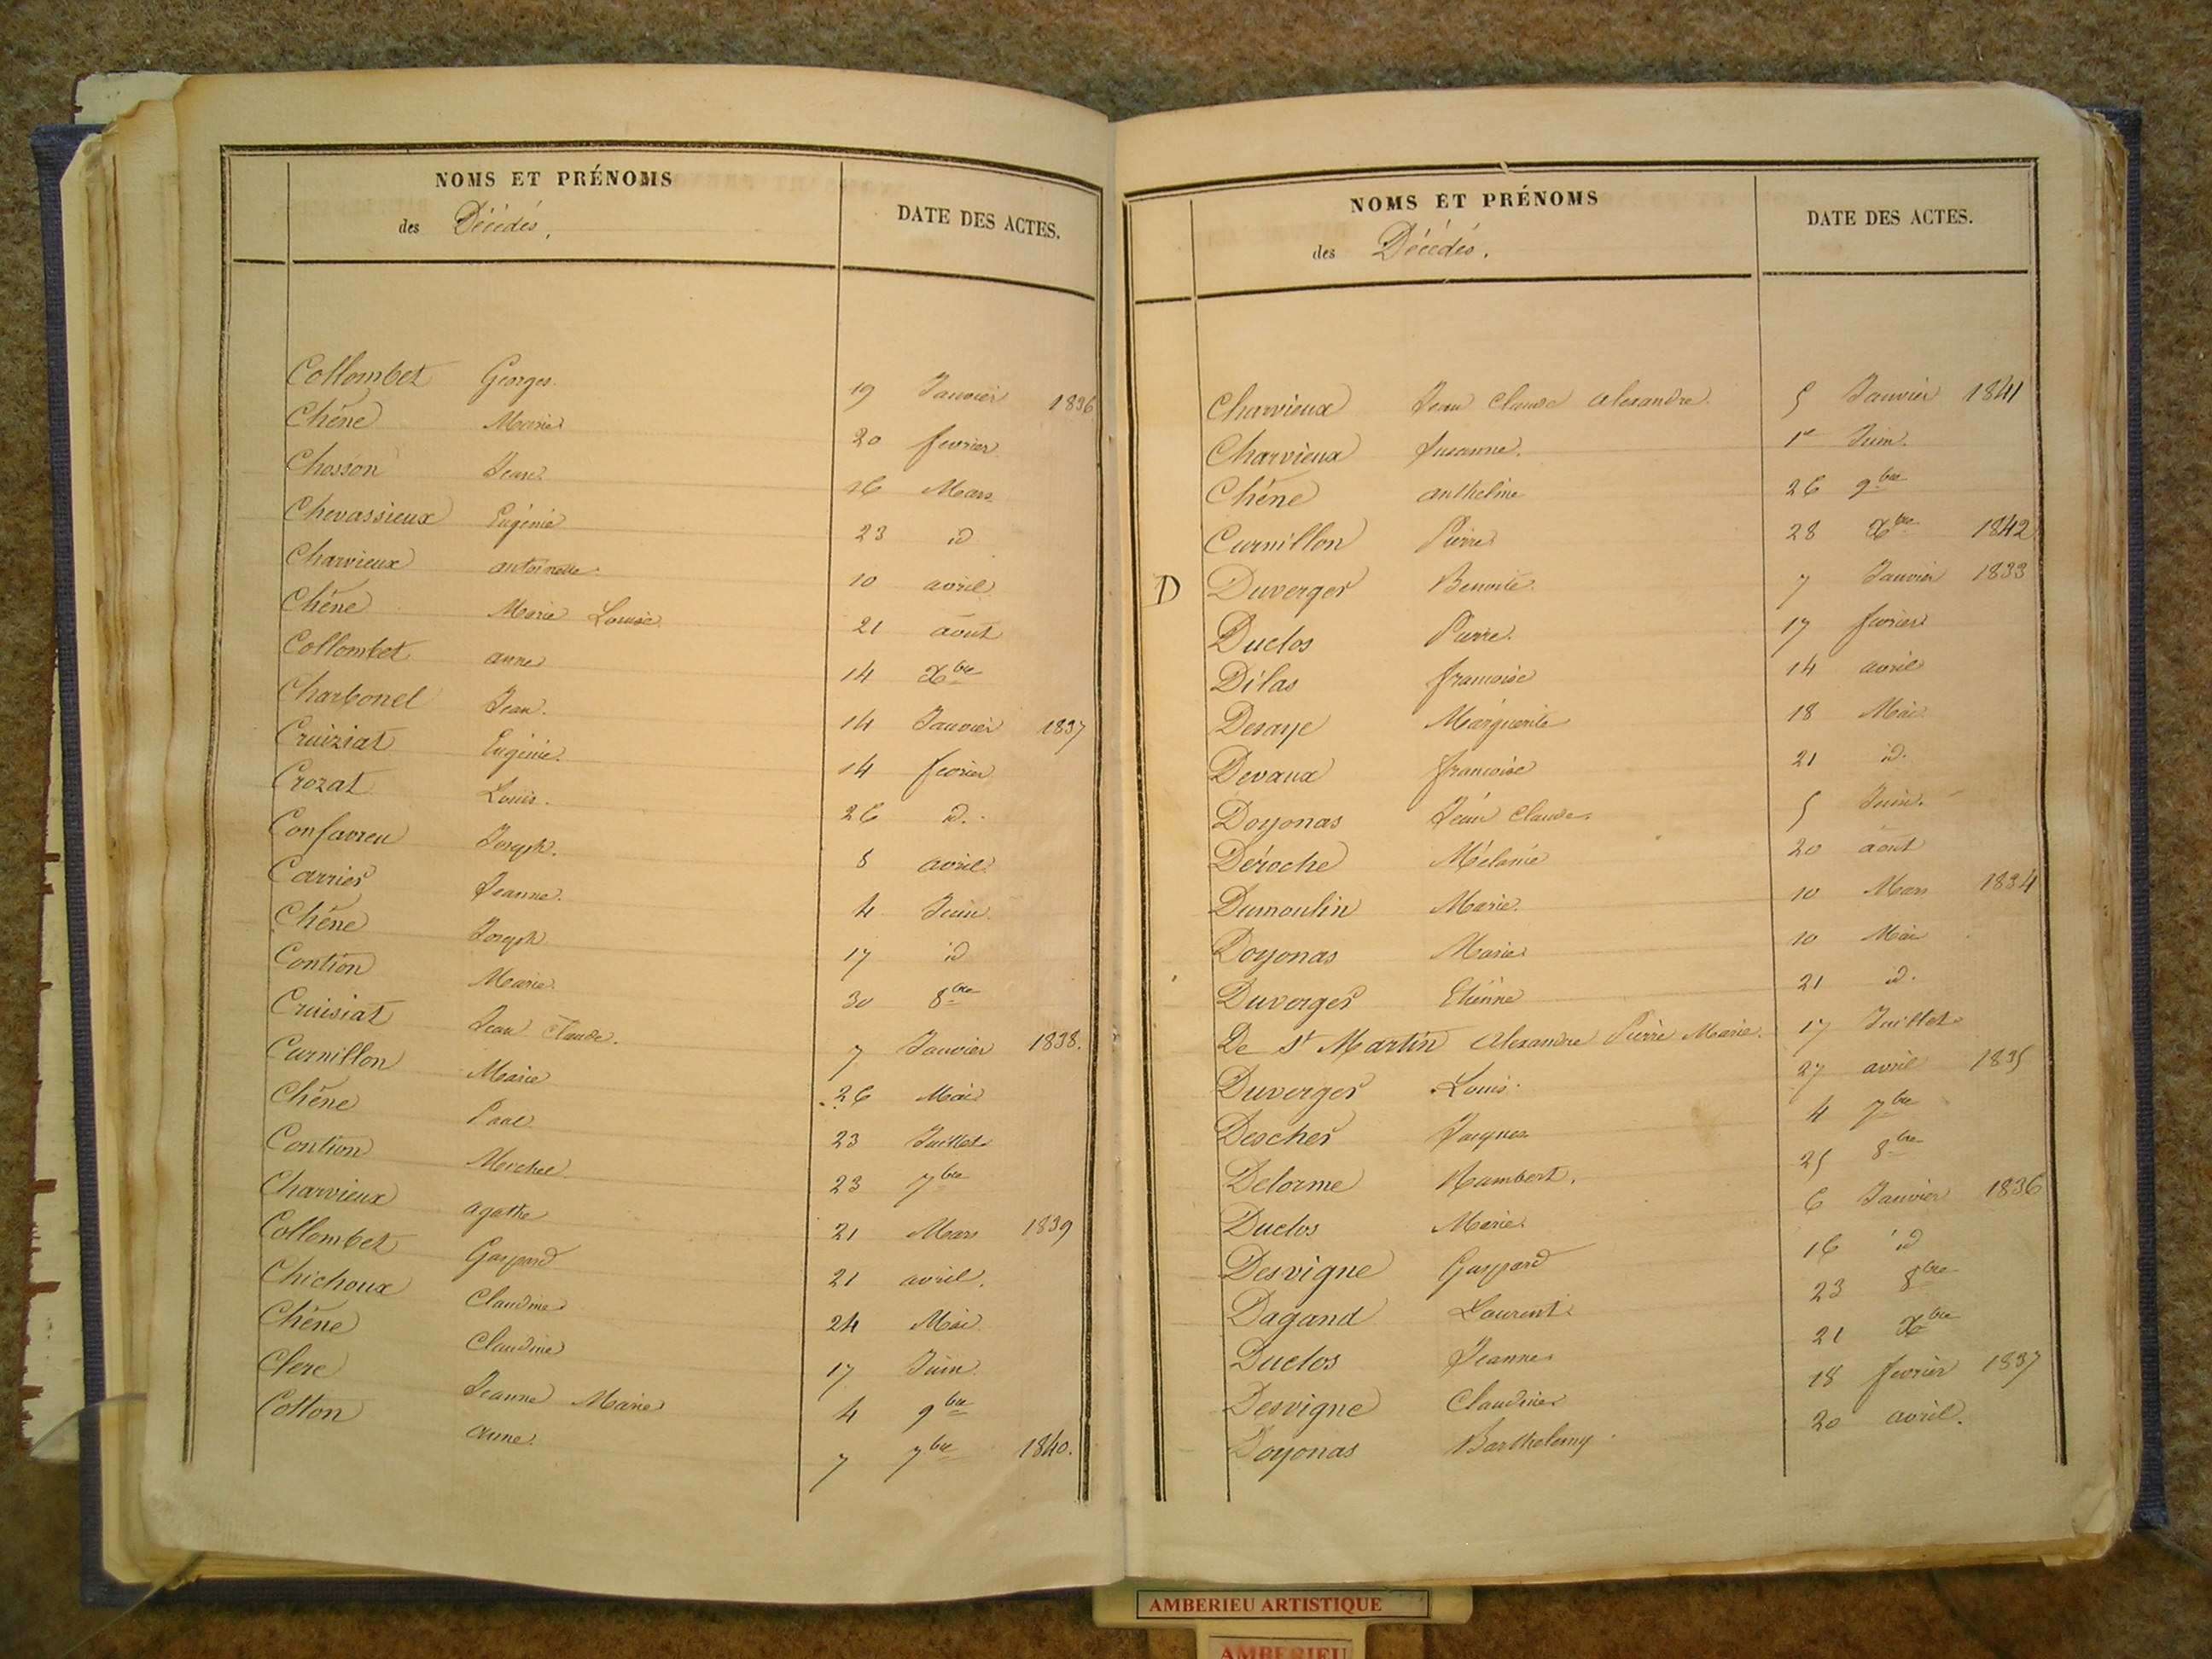 NOMS ET PRÉNOMS
des Décédés.
DATE DES ACTES.
Collombet Georges. 19 Janvier 1836
Chêne Marie 20 fevrier
Chosson Jean 16 Mars
Chevassieux Eugénie 23 id
Charvieux antoinette 10 avril
Chêne Marie Louise 21 août
Collombet anne 14 Xbre
Charbonel Jean. 14 Janvier 1837
Cruiziat Eugénie. 14 fevrier
Crozat Louis. 26 id.
Confavreu Joseph. 8 avril
Carrier Jeanne. 4 Juin
Chêne Joseph 17 id
Contion Marie 30 8bre
Cruisiat Jean Claude. 7 Janvier 1838.
Curnillon Marie 26 Mai
Chêne Paul 23 Juillet
Contion Michel 23 7bre
Charvieux agathe 21 Mars 1839
Collombet Gaspard 21 avril.
Chichoux Claudine 24 Mai
Chêne Claudine 17 Juin
Clerc Jeanne Marie 4 9bre
Cotton anne. 7 7bre 1840.
NOMS ET PRÉNOMS
des Décédés.
DATE DES ACTES.
Charvieux Jean Claude Alexandre. 5 Janvier 1841
Charvieux Susanne. 1er Juin.
Chêne anthelme 26 9bre
Curnillon Pierre 28 Xbre 1842
D Duverger Benoite. 7 Janvier 1833
Duclos Pierre. 17 fevrier
Délas francoise 14 avril
Desaye Marguerite 18 Mai
Devaux francoise 21 id.
Doyonas Jean Claude. 5 Juin.
Déroche Mélanie 20 août
Dumoulin Marie. 10 Mars 1834
Doyonas Marie 10 Mai
Duverger Etienne 21 id.
De St Martin Alexandre Pierre Marie. 17 Juillet
Duverger Louis. 27 avril 1835
Descher Jacques 4 7bre
Delorme Rambert. 25 8bre
Duclos Marie 6 Janvier 1836
Desvigne Gaspard 16 id
Dagand Laurent 23 8bre
Duclos Jeanne 21 Xbre
Desvigne Claudine 18 fevrier 1837
Doyonas Barthelemy. 20 avril.
AMBERIEU ARTISTIQUE
AMBERIEU